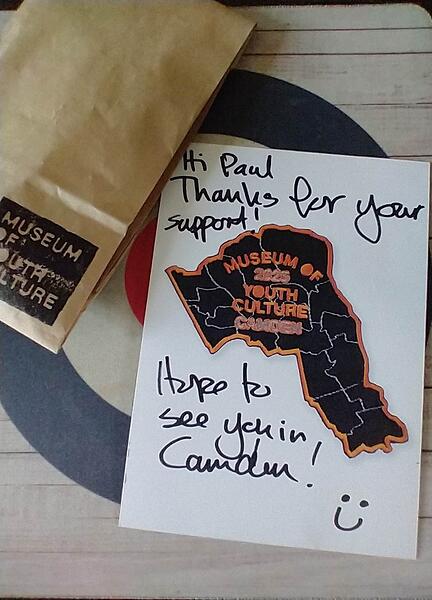 MUSEUM
OF
YOUTH
CULTURE
Hi Paul
Thanks for your
support!
MUSEUM OF
2025
YOUTH
CULTURE
CAMDEN
Hope to
see you in
Camden!